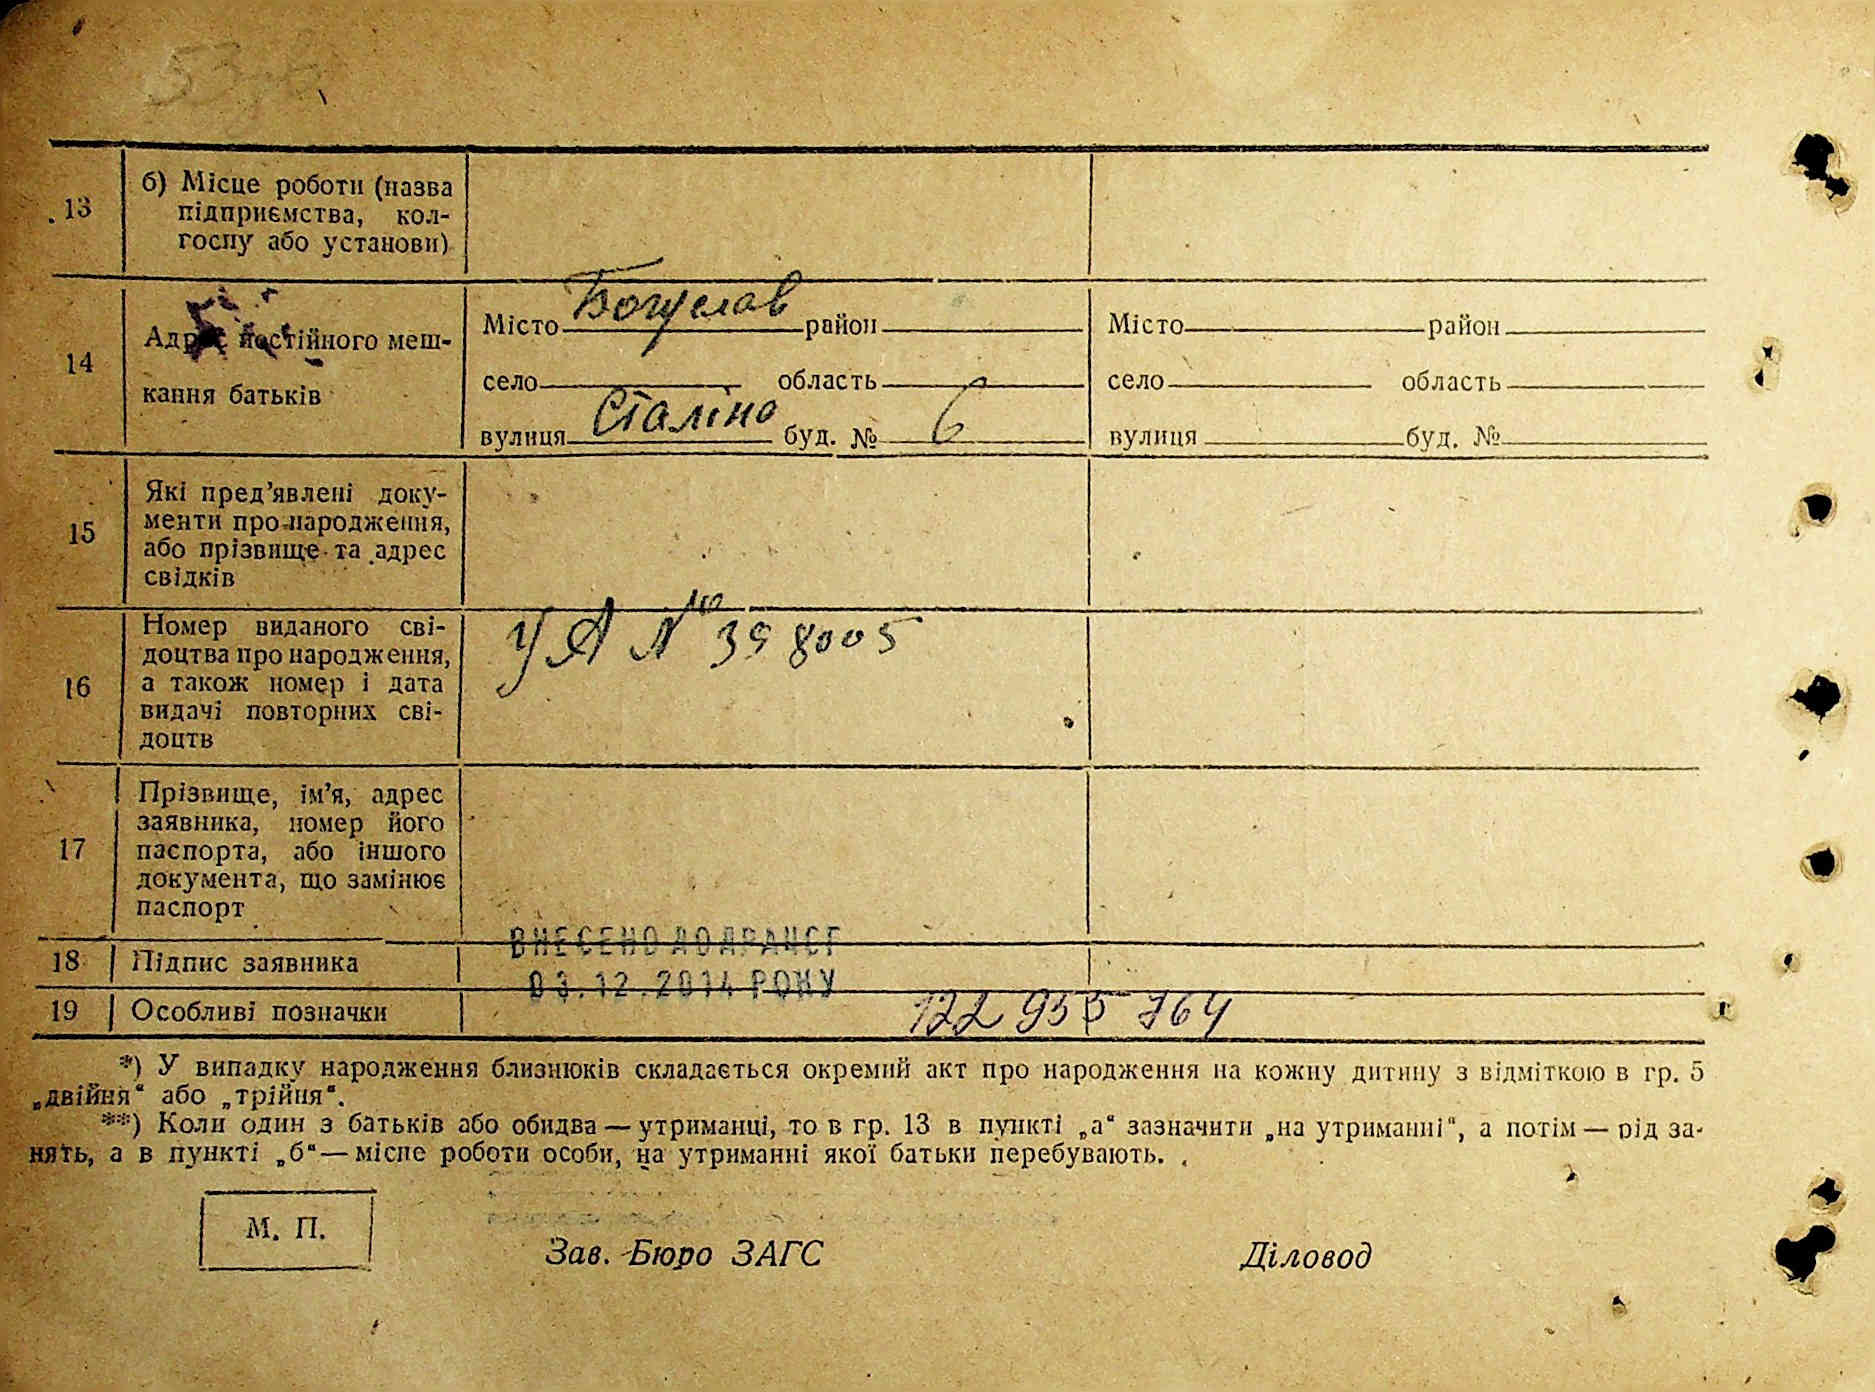 13
б) Місце роботи (назва
підприємства, кол-
госпу або установи)
14
Адрес постійного меш-
кання батьків
Місто Богуслав район
Місто район
село область
село область
вулиця Сталіна буд. № 6
вулиця буд. №
15
Які пред’явлені доку-
менти про народження,
або прізвище та адрес
свідків
16
Номер виданого сві-
доцтва про народження,
а також номер і дата
видачі повторних сві-
доцтв
УА № 398005
17
Прізвище, ім’я, адрес
заявника, номер його
паспорта, або іншого
документа, що замінює
паспорт
ВНЕСЕНО ДО ДРАЦСГ
18 Підпис заявника
03.12.2014 РОКУ
19 Особливі позначки
122 955 764
*) У випадку народження близнюків складається окремий акт про народження на кожну дитину з відміткою в гр. 5
„двійня“ або „трійня“.
**) Коли один з батьків або обидва — утриманці, то в гр. 13 в пункті „а“ зазначити „на утриманні“, а потім — рід за-
нять, а в пункті „б“ — місце роботи особи, на утриманні якої батьки перебувають.
М. П.
Зав. Бюро ЗАГС
Діловод